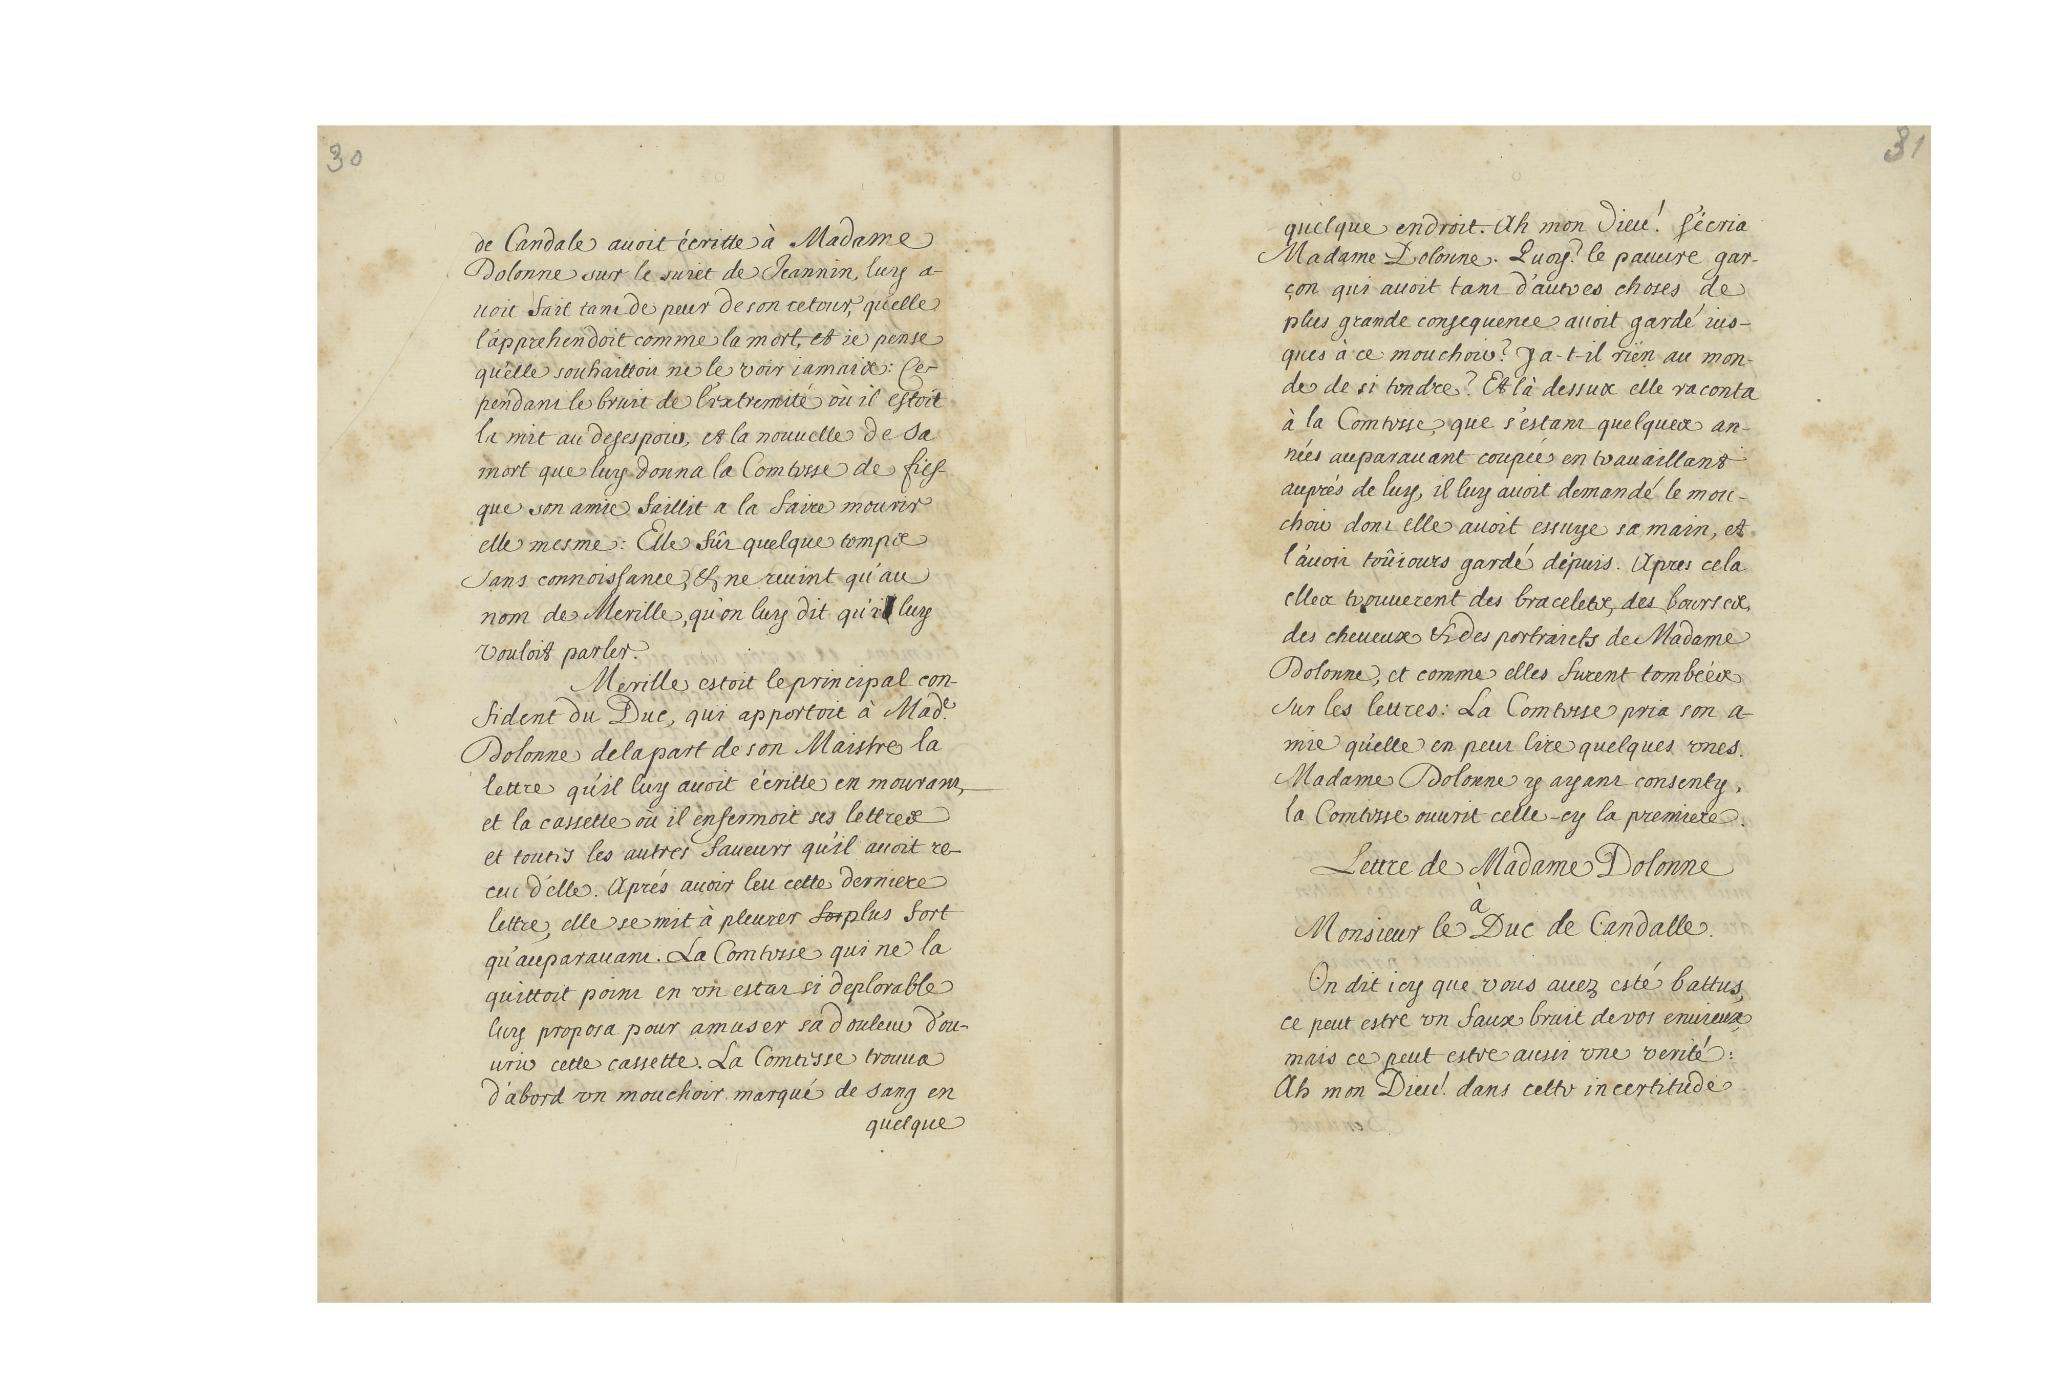 30
de Candale auoit écritte à Madame
Dolonne sur le suiet de Jeannin, luy a-
uoit fait tant de peur de son retour, qu'elle
l'apprehendoit comme la mort, et ie pense
qu'elle souhaittoit ne le voir iamais: Ce-
pendant le bruit de l'extremité où il estoit
la mit au desespoir, et la nouuelle de sa
mort que luy donna la Comtesse de fies-
que son amie faillit a la faire mourir
elle mesme: Elle fût quelque temps
sans connoissance, & ne reuint qu'au
nom de Merille, qu'on luy dit qu'il luy
vouloit parler.
Merille estoit le principal con-
fident du Duc, qui apportoit à Mad.e
Dolonne de la part de son Maistre la
lettre qu'il luy auoit écritte en mourant,
et la cassette où il enfermoit ses lettres
et toutes les autres faueurs qu'il auoit re-
ceu d'elle. Aprés auoir leu cette derniere
lettre, elle se mit à pleurer for plus fort
qu'auparauant. La Comtesse qui ne la
quittoit point en vn estat si deplorable
luy proposa pour amuser sa douleur d'ou-
urir cette cassette. La Comtesse trouua
d'abord vn mouchoir marqué de sang en
quelque
31
quelque endroit. Ah mon Dieu! s'écria
Madame Dolonne. Quoy? le pauure gar-
çon qui auoit tant d'autres choses de
plus grande consequence auoit gardé ius-
ques à ce mouchoir? Y a-t-il rien au mon-
de de si tendre? Et là dessus elle raconta
à la Comtesse, que s'estant quelques an-
nées auparauant coupée en trauaillant
auprés de luy, il luy auoit demandé le mou-
choir dont elle auoit essuye sa main, et
l'auoit toûiours gardé depuis. Apres cela
elles trouuerent des bracelets, des bourses,
des cheueux & des portraicts de Madame
Dolonne, et comme elles furent tombées
sur les lettres: La Comtesse pria son a-
mie qu'elle en peut lire quelques vnes.
Madame Dolonne y ayant consenty,
la Comtesse ouurit celle-cy la premiere.
Lettre de Madame Dolonne
à
Monsieur le Duc de Candalle.
On dit icy que vous auez esté battus,
ce peut estre vn faux bruit de vos enuieux,
mais ce peut estre aussi vne verité:
Ah mon Dieu! dans cette incertitude